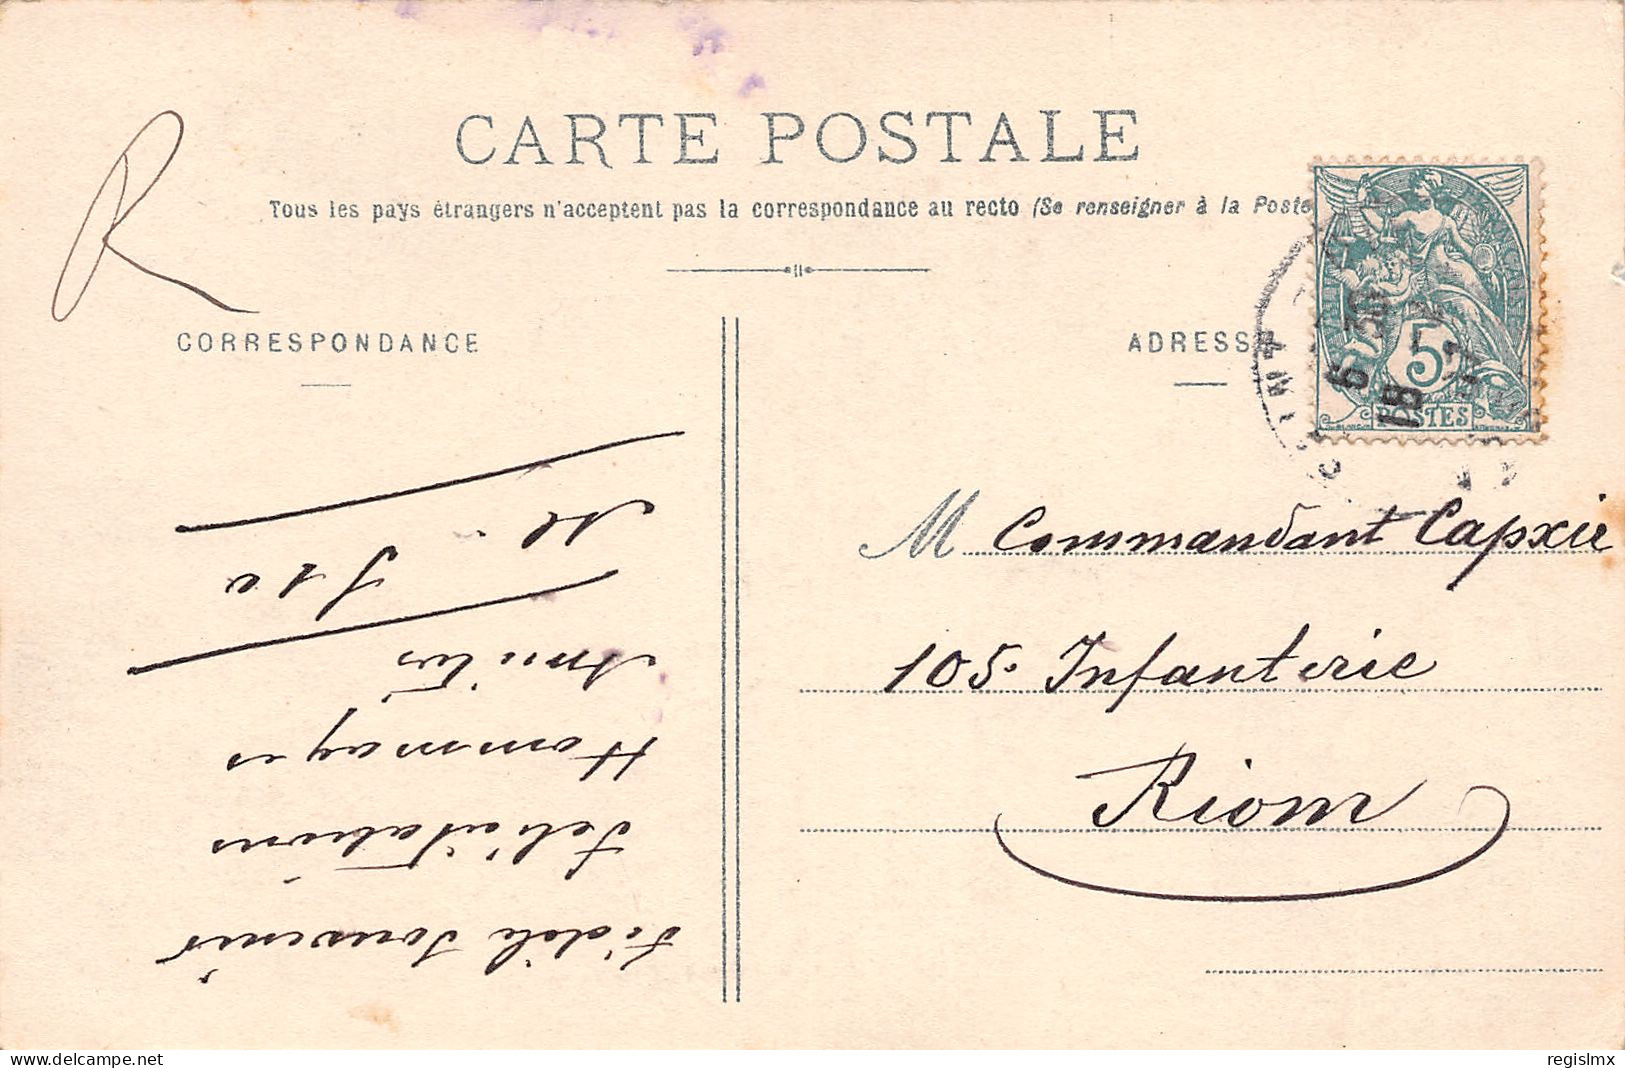 CARTE POSTALE
Tous les pays étrangers n'acceptent pas la correspondance au recto (Se renseigner à la Poste
R
CORRESPONDANCE
Fidèle Souvenir
Félicitations
Hommages
Amitiés
ADRESSE
5
POSTES
6 30
18
M Commandant Capxir
105. Infanterie
Riom
regislmx